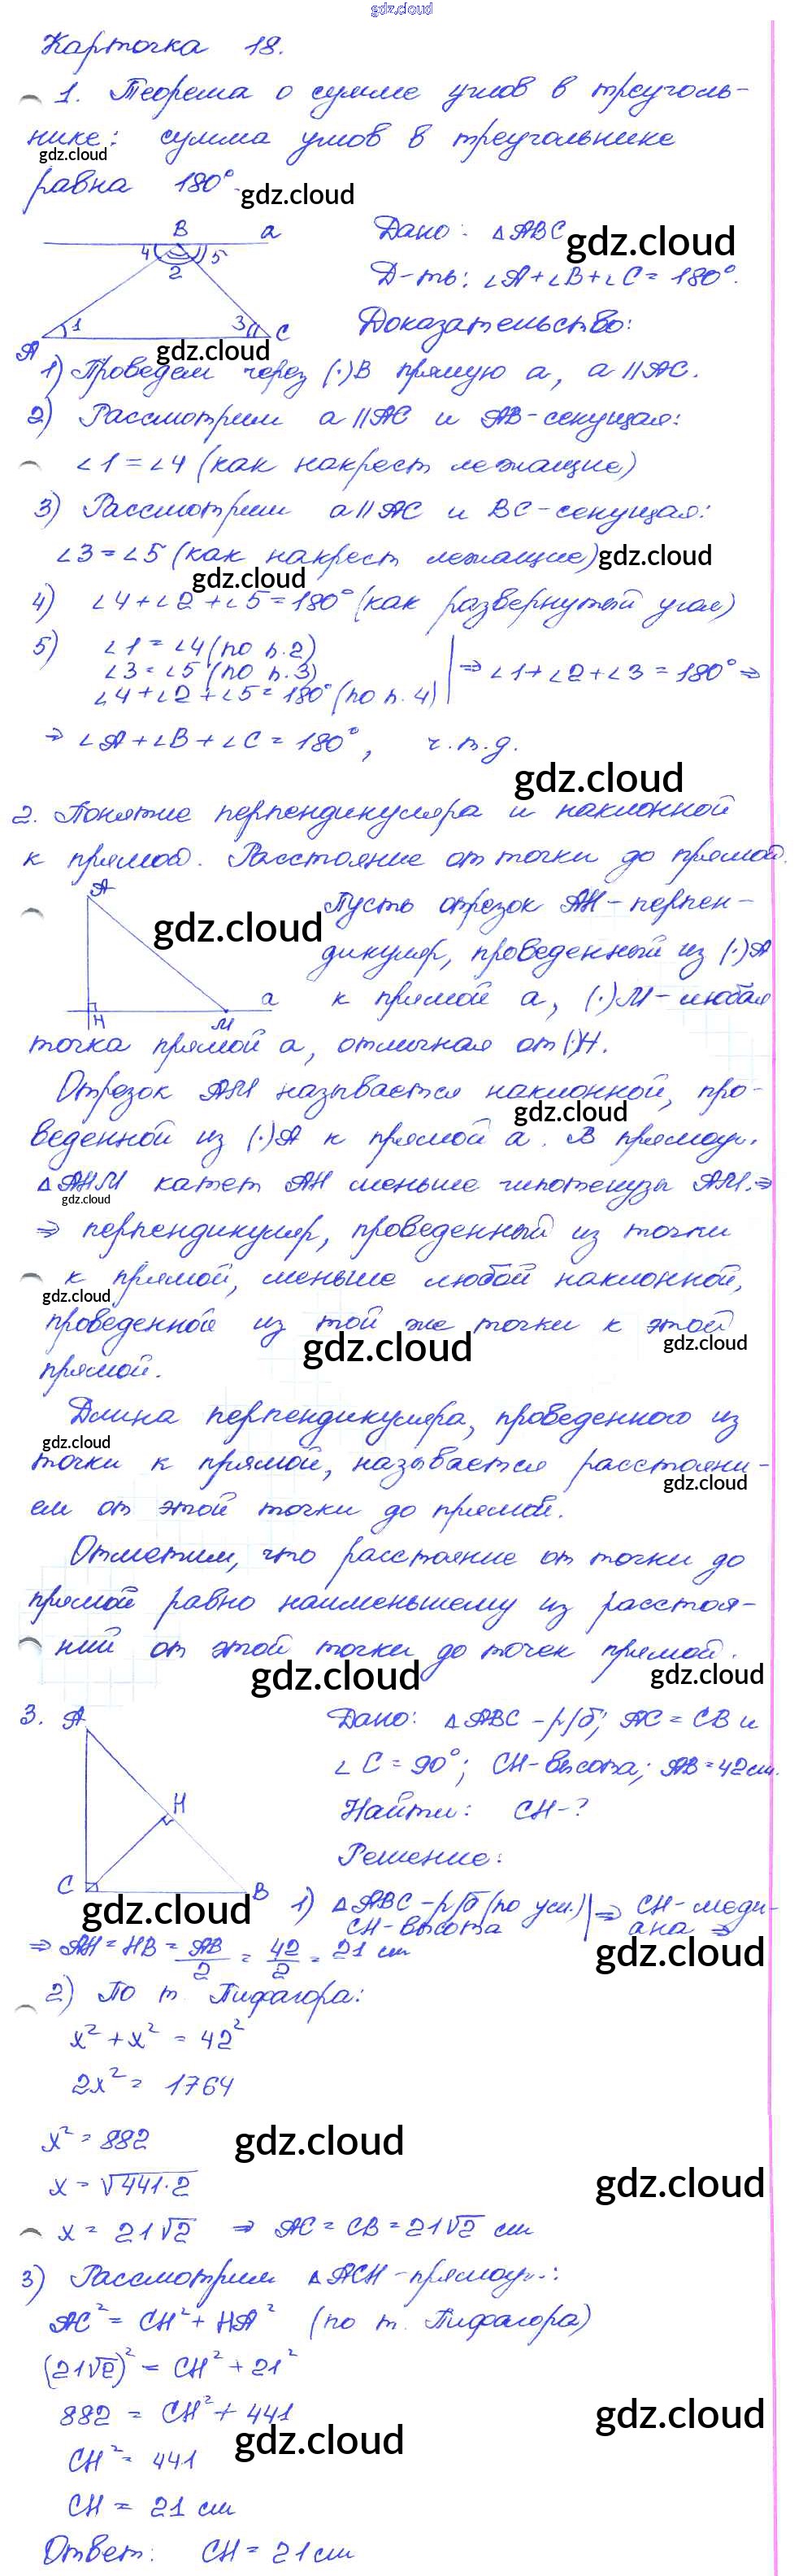 gdz.cloud
Карточка 18.
1. Теорема о сумме углов в треуголь-
нике: сумма углов в треугольнике
gdz.cloud
равна 180°.
gdz.cloud
B a
4 5
2
1 3
A C
Дано: △ABC
gdz.cloud
Д-ть: ∠A+∠B+∠C=180°.
Доказательство:
gdz.cloud
1) Проведем через (·)B прямую a, a||AC.
2) Рассмотрим a||AC и AB-секущая:
∠1=∠4 (как накрест лежащие)
3) Рассмотрим a||AC и BC-секущая:
∠3=∠5 (как накрест лежащие)
gdz.cloud
gdz.cloud
4) ∠4+∠2+∠5=180° (как развернутый угол)
5) ∠1=∠4 (по п.2)
∠3=∠5 (по п.3)
∠4+∠2+∠5=180° (по п.4)
⇒ ∠1+∠2+∠3=180° ⇒
⇒ ∠A+∠B+∠C=180°, ч.т.д.
gdz.cloud
2. Понятие перпендикуляра и наклонной
к прямой. Расстояние от точки до прямой.
A
H M a
gdz.cloud
Пусть отрезок AH-перпен-
дикуляр, проведенный из (·)A
к прямой a, (·)M-любая
точка прямой a, отличная от (·)H.
Отрезок AM называется наклонной, про-
gdz.cloud
веденной из (·)A к прямой a. В прямоуг.
△AHM катет AH меньше гипотенузы AM.⇒
gdz.cloud
⇒ перпендикуляр, проведенный из точки
к прямой, меньше любой наклонной,
gdz.cloud
проведенной из той же точки к этой
gdz.cloud
gdz.cloud
прямой.
Длина перпендикуляра, проведенного из
gdz.cloud
точки к прямой, называется расстояни-
gdz.cloud
ем от этой точки до прямой.
Отметим, что расстояние от точки до
прямой равно наименьшему из расстоя-
ний от этой точки до точек прямой.
gdz.cloud
gdz.cloud
3. A
H
C B
Дано: △ABC-р/б; AC=CB и
∠C=90°; CH-высота; AB=42см.
Найти: CH-?
Решение:
gdz.cloud
1) △ABC-р/б (по усл.)
CH-высота
⇒ CH-меди-
ана ⇒
gdz.cloud
⇒ AH=HB=AB/2=42/2=21 см
2) По т. Пифагора:
x²+x²=42²
2x²=1764
x²=882
gdz.cloud
x=√441·2
gdz.cloud
x=21√2 ⇒ AC=CB=21√2 см
3) Рассмотрим △ACH-прямоуг.:
AC²=CH²+HA² (по т. Пифагора)
(21√2)²=CH²+21²
882=CH²+441
gdz.cloud
gdz.cloud
CH²=441
CH=21 см
Ответ: CH=21 см